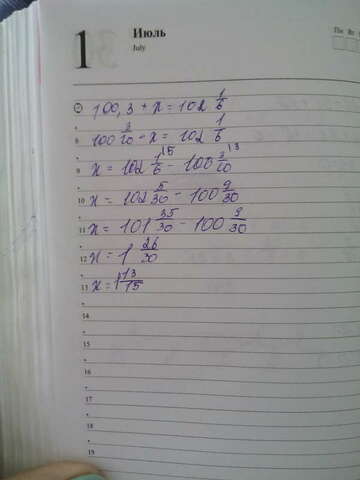 1 Июль
July
Пн Вт
100,3 + x = 102 1/6
8 100 3/10 + x = 102 1/6
9 x = 102 1/6 |5 - 100 3/10 |3
10 x = 102 5/30 - 100 9/30
11 x = 101 35/30 - 100 9/30
12 x = 1 26/30
13 x = 1 13/15
14
15
16
17
18
19